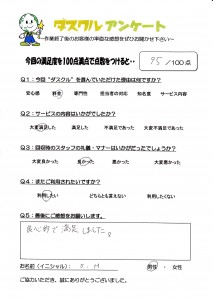 ダスクルアンケート
～作業終了後のお客様の率直な感想をぜひお聞かせ下さい～
今回の満足度を100点満点で点数をつけると・・ 95/100点
Q1：今回“ダスクル”を選んでいただけた理由は何ですか？
安心感 料金 専門性 担当者の対応 知名度 サービス内容
Q2：サービスの内容はいかがでしたか？
大変満足した 満足した 不満足であった 大変不満足であった
Q3：当日待時のスタッフの礼儀・マナーはいかがだったでしょうか？
大変良かった 良かった 悪かった 大変悪かった
Q4：またご利用されたいですか？
利用したい どちらとも言えない 利用したくない
Q5：最後にご感想をお願いします。
良心的で満足しました。
お名前（イニシャル）： S.M 男性 ・ 女性
ご協力いただき、誠にありがとうございました。